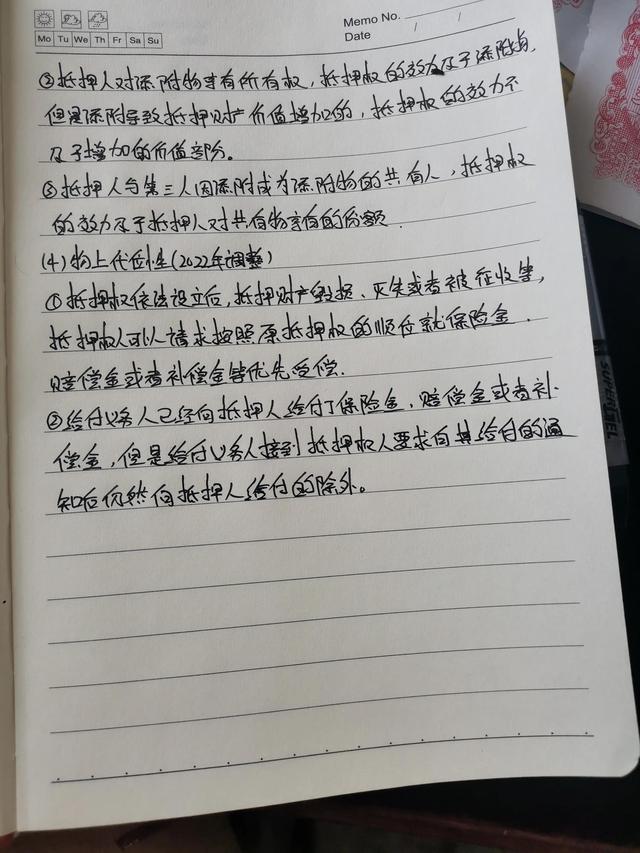 Memo No.
Date / /
Mo Tu We Th Fr Sa Su
②抵押人对添附物享有所有权，抵押权的效力及于添附物，
但是添附导致抵押财产价值增加的，抵押权的效力不
及于增加的价值部份。
③抵押人与第三人因添附成为添附物的共有人，抵押权
的效力及于抵押人对共有物享有的份额．
(4)物上代位性(2022年调整)
①抵押权依法设立后，抵押财产毁损、灭失或者被征收等，
抵押权人可以请求按照原抵押权的顺位就保险金．
赔偿金或者补偿金等优先受偿．
②给付义务人已经向抵押人给付了保险金．赔偿金或者补
偿金，但是给付义务人接到抵押权人要求向其给付的通
知后仍然向抵押人给付的除外。
SUPER